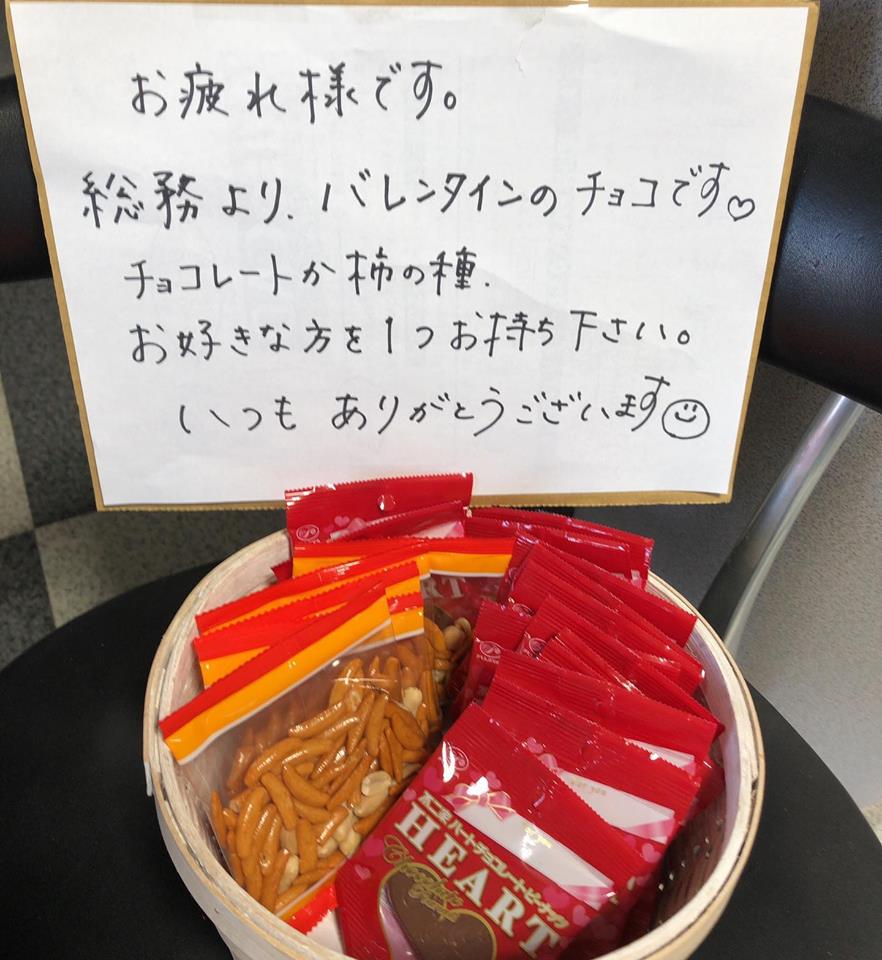 お疲れ様です。
総務より、バレンタインのチョコです♡
チョコレートか柿の種、
お好きな方を1つお持ち下さい。
いつもありがとうございます☺
不二家ハートチョコレートピーナッツ
HEART
Chocolate